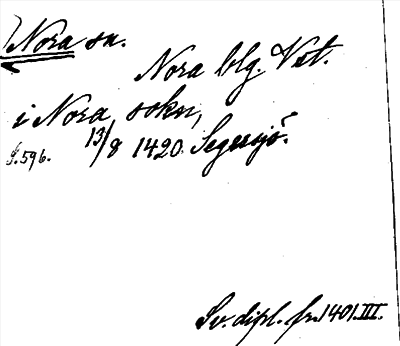 Nora sn.
Nora blg. Vstm.
i Nora sokn,
S. 596. 13/8 1420. Segersjö.
Sv. dipl. fr. 1401. III.